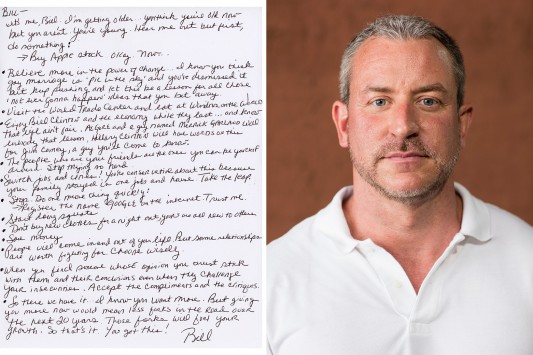 BILL—
its me, Bill. I'm getting older... you think you're old now
but you aren't. You're young. Hear me out but first,
do something!
→ Buy Apple stock okay. Now...
• Believe more in the power of change. I know you think
gay marriage is 'pie in the sky' and you've dismissed it
but keep pushing and let this be a lesson for all those
'not ever gonna happen' ideas that you
• Visit the World Trade Center and eat at Windows on the World
• Enjoy Bill Clinton and the economy while they last... and know
that life ain't fair. Al Gore and a guy named Merrick Garland will
embody that lesson. Hillary Clinton will have words on this
for Jim Comey, a guy you'll come to know.
• The people who are your friends are the ones you can be yourself
around. Stop trying so hard
• Switch jobs and cities! You're conservative about this because
your family stayed in one job and home. Take the leap.
• Stop. Do one more thing quickly!
→ Register the name Google on the internet. Trust me.
• Start doing squats
• Don't buy new clothes for a night out. You're all new to others
• Save money
• People will come in and out of your life. But some relationships
are worth fighting for. Choose wisely
• When you find people whose opinion you trust stick
with them and their conclusions even when they challenge
your insecurities. Accept the compliments and the critiques.
• So there we have it. I know you want more. But giving
you more now would mean less forks in the road over
the next 20 years. Those forks will fuel your
growth. So that's it. You got this!
Bill